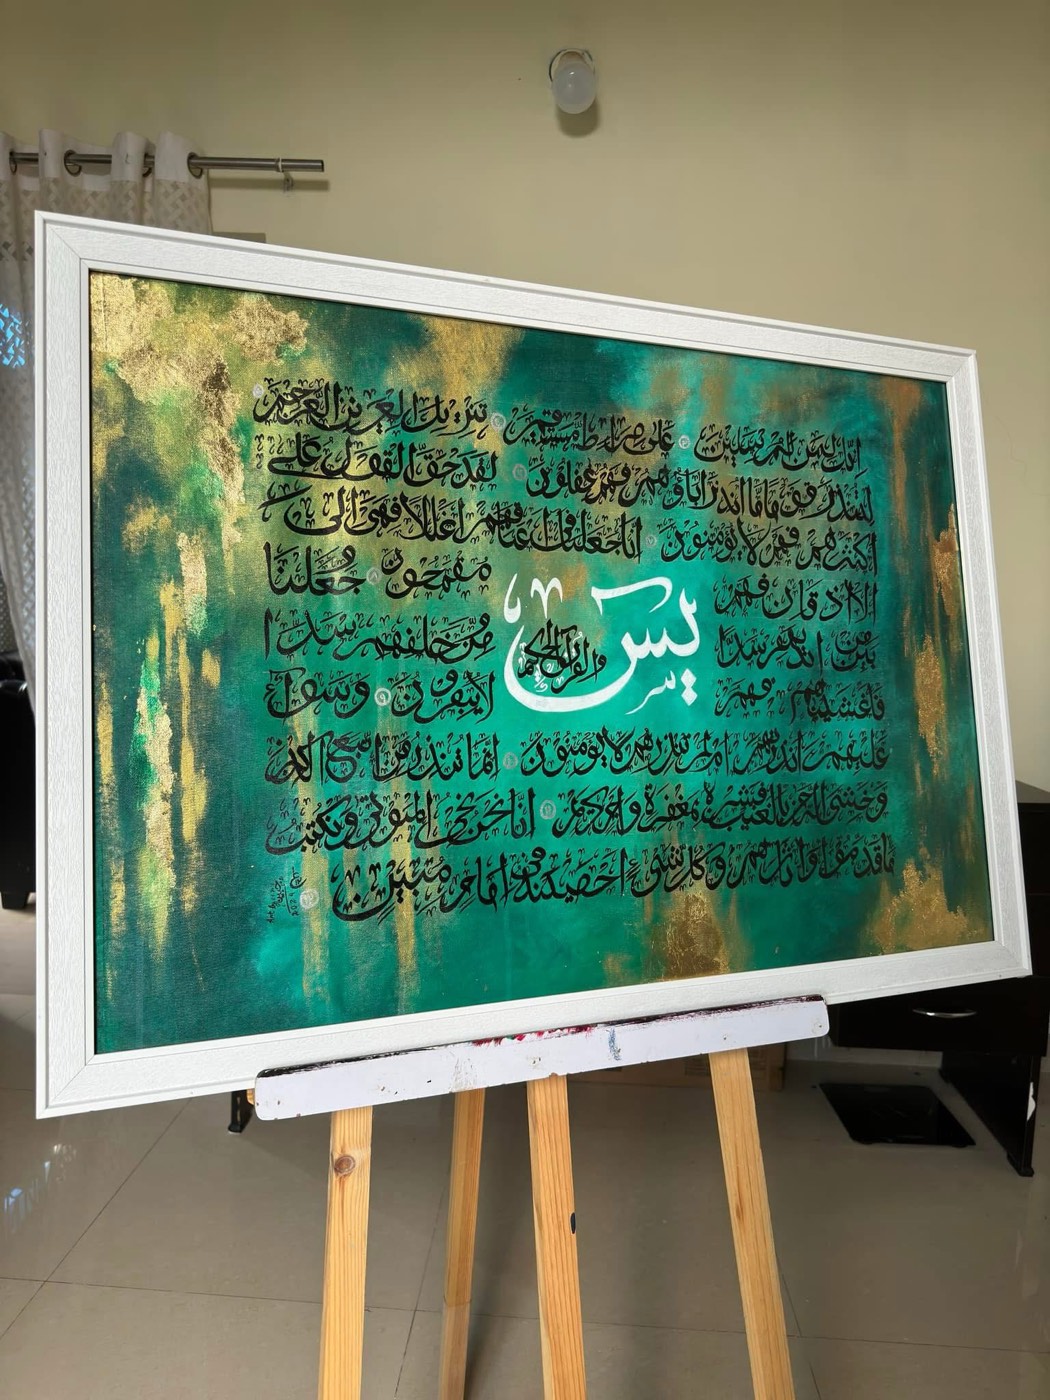 يس
والقرآن الحكيم
انك لمن المرسلين على صراط مستقيم تنزيل العزيز الرحيم
لتنذر قوما ما انذر اباؤهم فهم غفلون لقد حق القول على
اكثرهم فهم لا يؤمنون انا جعلنا في اعناقهم اغللا فهي الى
الاذقان فهم مقمحون وجعلنا
بين ايديهم سدا ومن خلفهم سدا
فاغشينهم فهم لا يبصرون وسواء
عليهم انذرتهم ام لم تنذرهم لا يؤمنون انما تنذر من اتبع الذكر
وخشي الرحمن بالغيب فبشره بمغفرة واجر كريم انا نحن نحي الموتى ونكتب
ما قدموا واثارهم وكل شيء احصينه في امام مبين